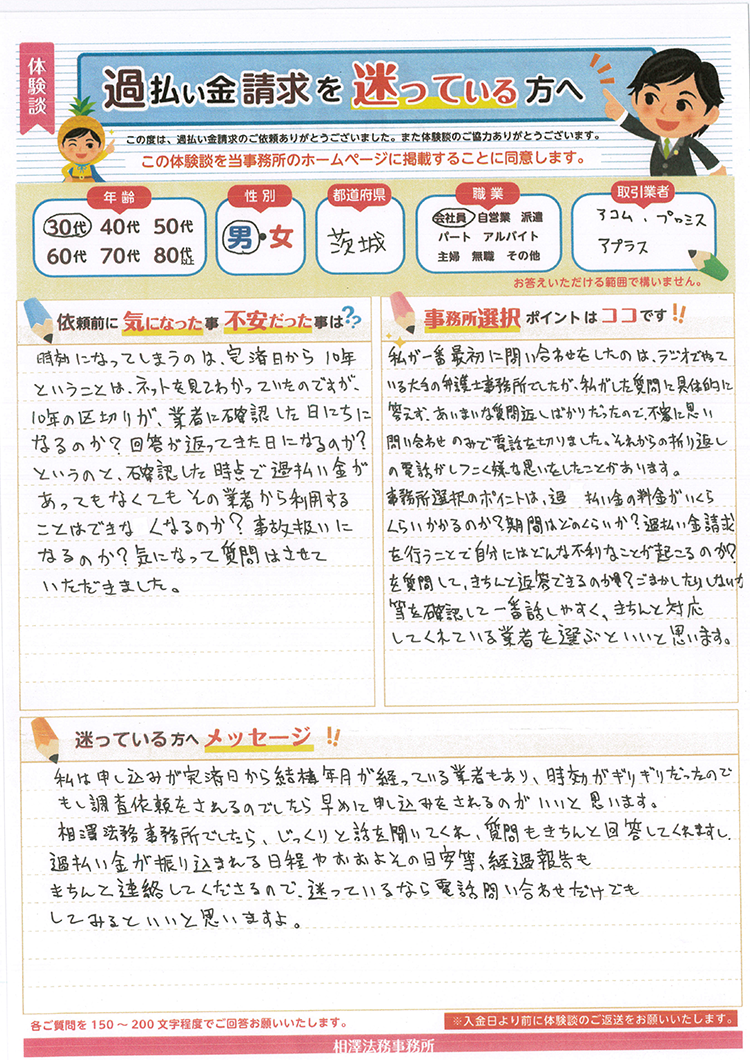 体験談
過払い金請求を迷っている方へ
この度は、過払い金請求のご依頼ありがとうございました。また体験談のご協力ありがとうございます。
この体験談を当事務所のホームページに掲載することに同意します。
年齢
30代 40代 50代
60代 70代 80代以上
性別
男・女
都道府県
茨城
職業
会社員 自営業 派遣
パート アルバイト
主婦 無職 その他
取引業者
アコム、プロミス
アプラス
お答えいただける範囲で構いません。
依頼前に気になった事 不安だった事は??
時効になってしまうのは、完済日から10年
ということは、ネットを見てわかっていたのですが、
10年の区切りが、業者に確認した日にちに
なるのか?回答が返ってきた日になるのか?
というのと、確認した時点で過払い金が
あってもなくてもその業者から利用する
ことはできな くなるのか?事故扱いに
なるのか?気になって質問はさせて
いただきました。
事務所選択 ポイントはココです!!
私が一番最初に問い合わせをしたのは、ラジオでやて
いる大手の弁護士事務所でしたが、私がした質問に具体的に
答えず、あいまいな質問返しばかりだったので、不審に思い
問い合わせのみで電話を切りました。それからの折り返し
の電話がしつこく嫌な思いをしたことがあります。
事務所選択のポイントは、過 払い金の料金がいくら
くらいかかるのか?期間はどのくらいか?過払い金請求
を行うことで自分にはどんな不利なことが起こるのか?
を質問して、きちんと返答できるのか?ごまかしたりしないか
等を確認して一番話しやすく、きちんと対応
してくれている業者を選ぶといいと思います。
迷っている方へ メッセージ!!
私は申し込みが完済日から結構年月が経っている業者もあり、時効がギリギリだったので
もし調査依頼をされるのでしたら早めに申し込みをされるのがいいと思います。
相澤法務事務所でしたら、じっくりと話を聞いてくれ、質問もきちんと回答してくれますし、
過払い金が振り込まれる日程やおおよその目安等、経過報告も
きちんと連絡してくださるので、迷っているなら電話問い合わせだけでも
してみるといいと思いますよ。
各ご質問を150〜200文字程度でご回答お願いいたします。
※入金日より前に体験談のご返送をお願いいたします。
相澤法務事務所